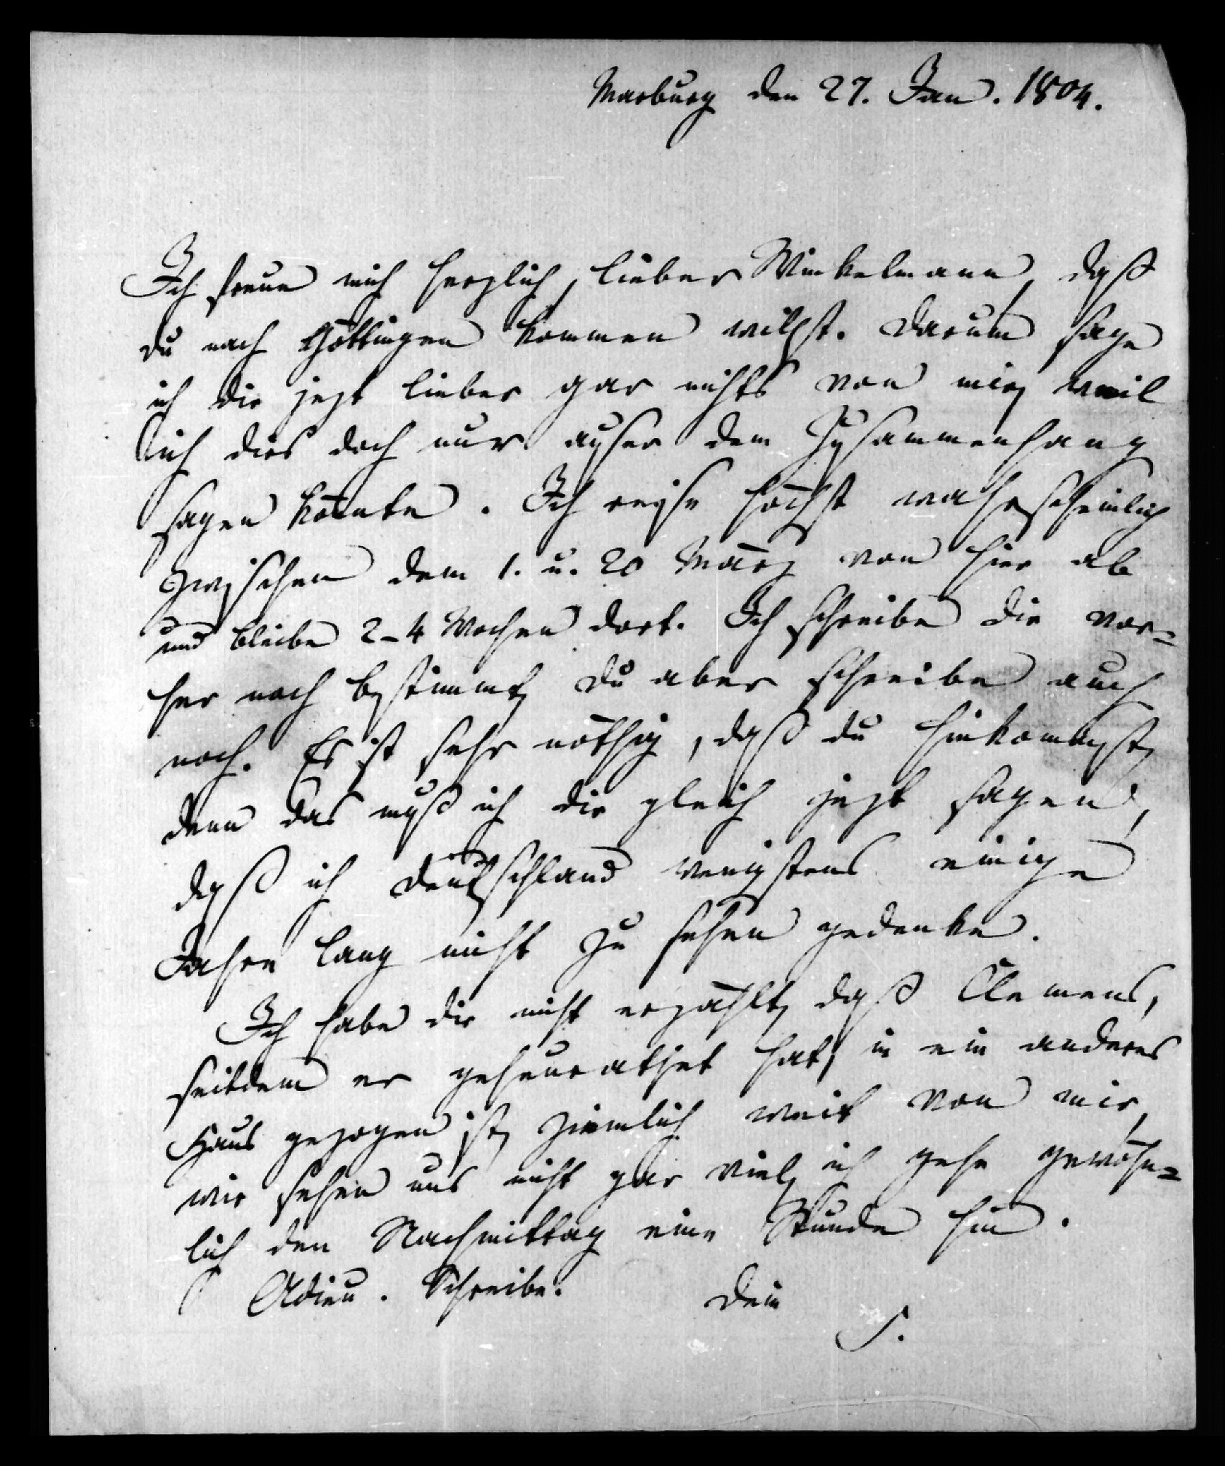 Marburg den 27. Jan. 1804.
Ich freue mich herzlich, lieber Winkelmann, daß
du nach Göttingen kommen willst. Darum sage
ich dir jezt lieber gar nichts von mir, weil
ich dies doch nur auser dem Zusammenhang
sagen könnte. Ich reise höchst wahrscheinlich
zwischen dem 1. u. 20 März von hier ab
und bleibe 2-4 Wochen dort. Ich schreibe dir vor=
her noch bestimmt, du aber schreibe auch
noch. Es ist sehr nöthig, daß du hinkommst,
denn das muß ich dir gleich jezt sagen,
daß ich Deutschland wenigstens einige
Jahre lang nicht zu sehen gedenke.
Ich habe dir nicht erzählt, daß Clemens,
seitdem er geheurathet hat, in ein anderes
Haus gezogen ist, ziemlich weit von mir,
wir sehen uns nicht gar viel, ich gehe gewöhn=
lich den Nachmittag eine Stunde hin.
Adieu. Schreibe. Dein
S.